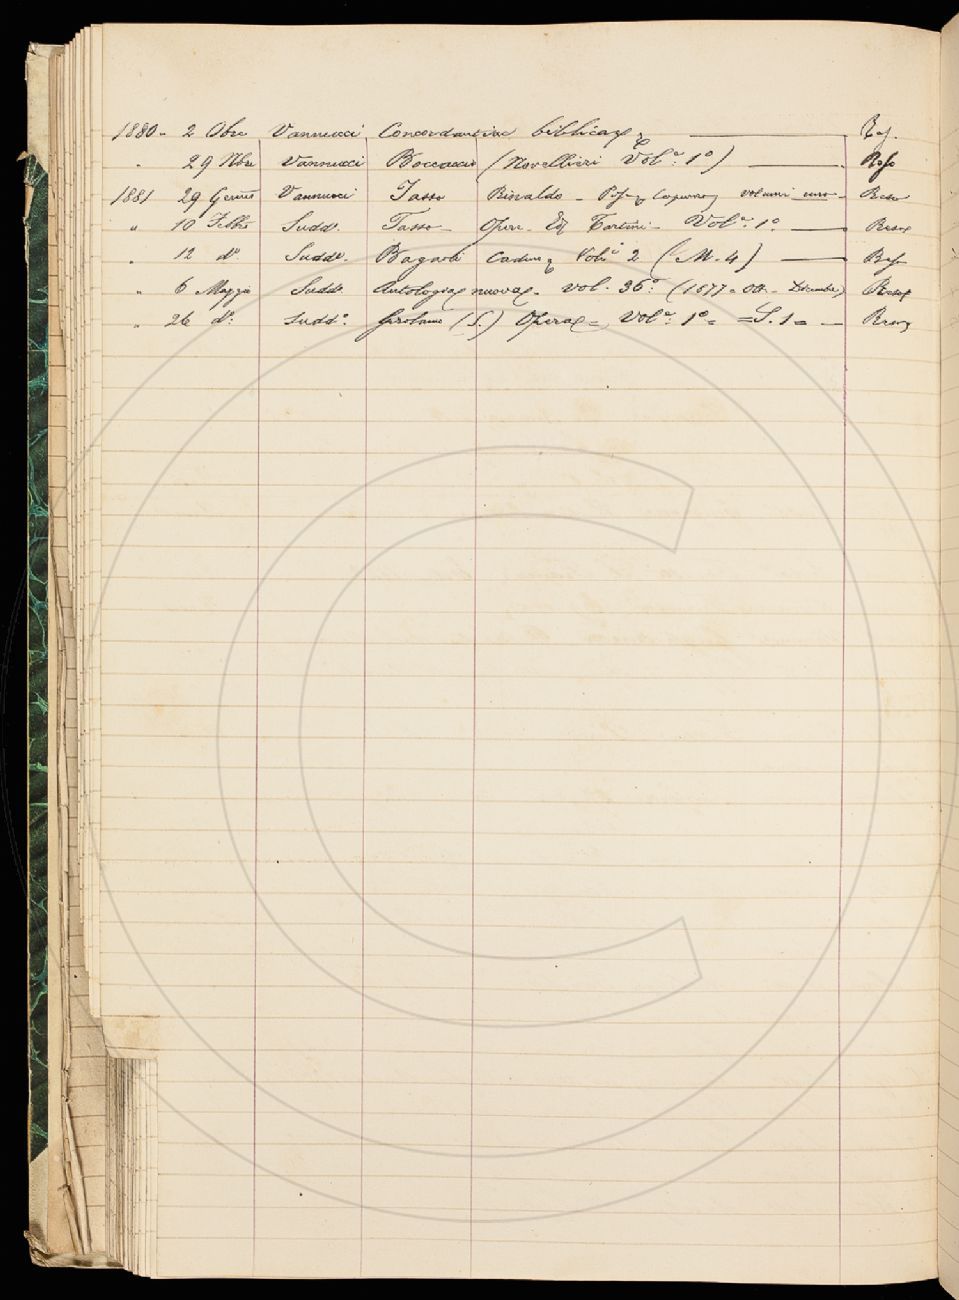 1880 - 2 Obre Vannucci Concordantiae biblicae
" 29 Nbre Vannucci Boccaccio (Novellieri Vol.e: 1°) Reso
1881 29 Genn Vannucci Tasso Rinaldo - volumi uno - Reso
" 10 Febb Sudd. Tasso - Opere - Vol.e: 1°. Reso
" 12 d° Sudd. Bagnoli Cadmo Vol.e 2 (M. 4) Reso
" 6 Maggio Sudd. Antologia nuova - vol. 36° (1877 - Ott. - Dicembre) Reso
" 26 d°: Sudd°. Girolamo (S.) Opera = Vol.e: 1° = =S. 1 = Reso